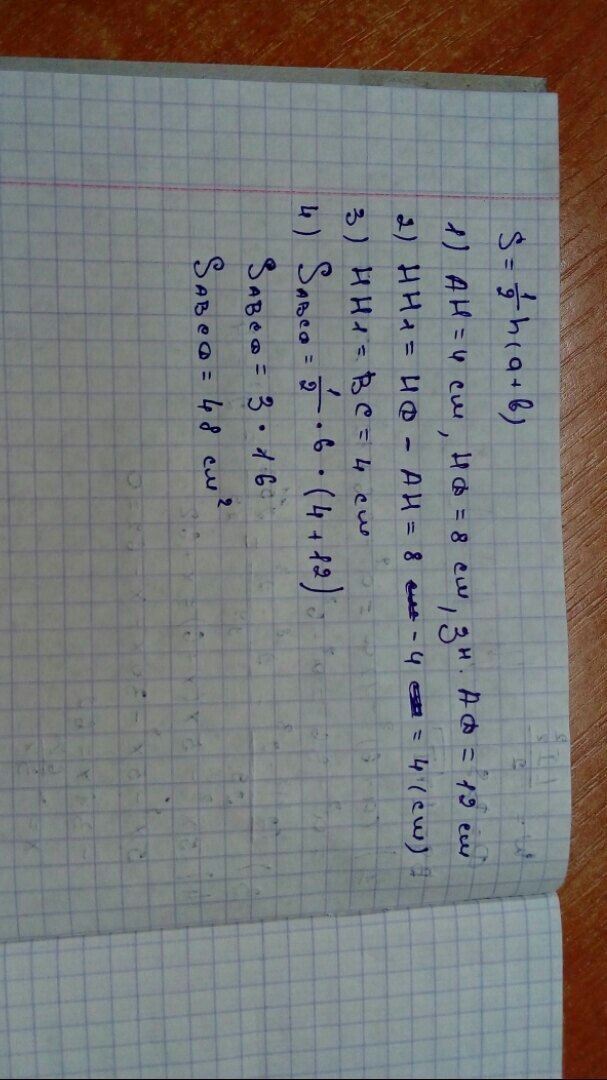 S = 1/2 h(a+b)
1) AH = 4 см, HD = 8 см, зн. AD = 12 см
2) HH1 = HD - AH = 8 - 4 = 4 (см)
3) HH1 = BC = 4 см
4) SABCD = 1/2 · 6 · (4+12)
SABCD = 3 · 16
SABCD = 48 см²